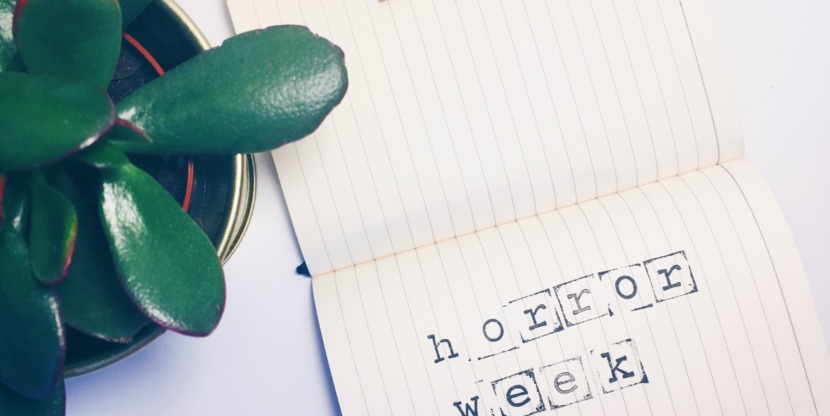 horror
week